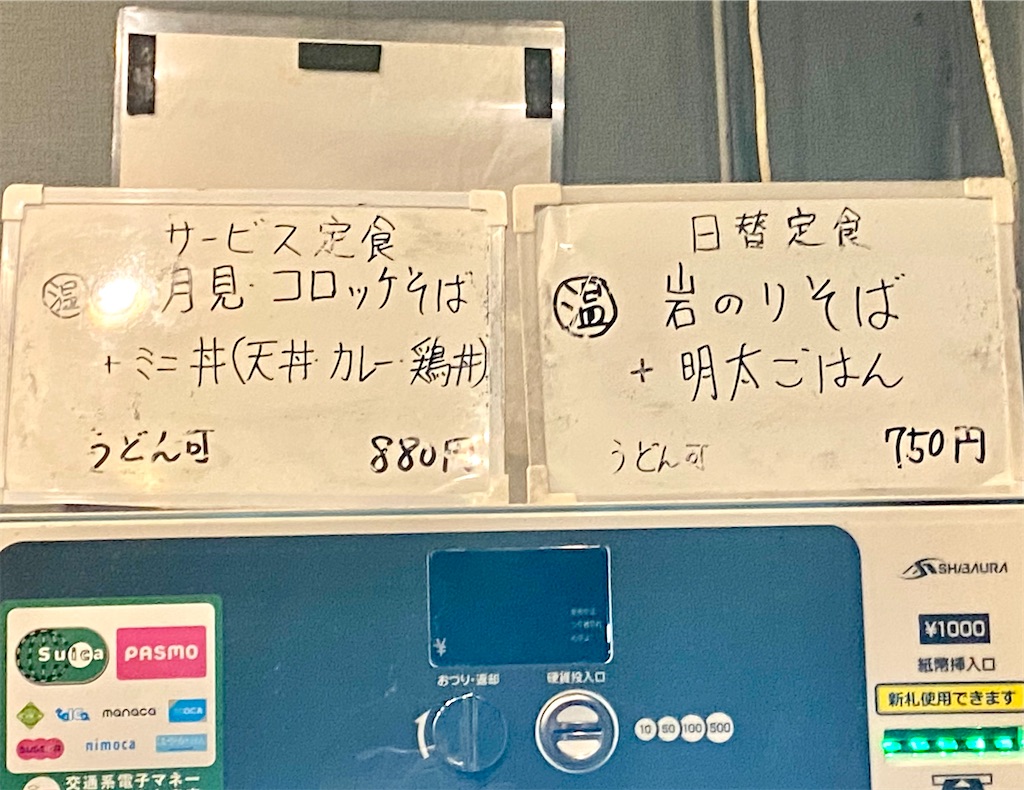 サービス定食
温 月見・コロッケそば
+ミニ丼(天丼・カレー・鶏丼)
うどん可 880円
日替定食
温 岩のりそば
+明太ごはん
うどん可 750円
SHIBAURA
¥1000
紙幣挿入口
新札使用できます
¥
おつり・返却
硬貨投入口
10 50 100 500
Suica PASMO
TOICa manaca
SUGOCA nimoca
交通系電子マネー